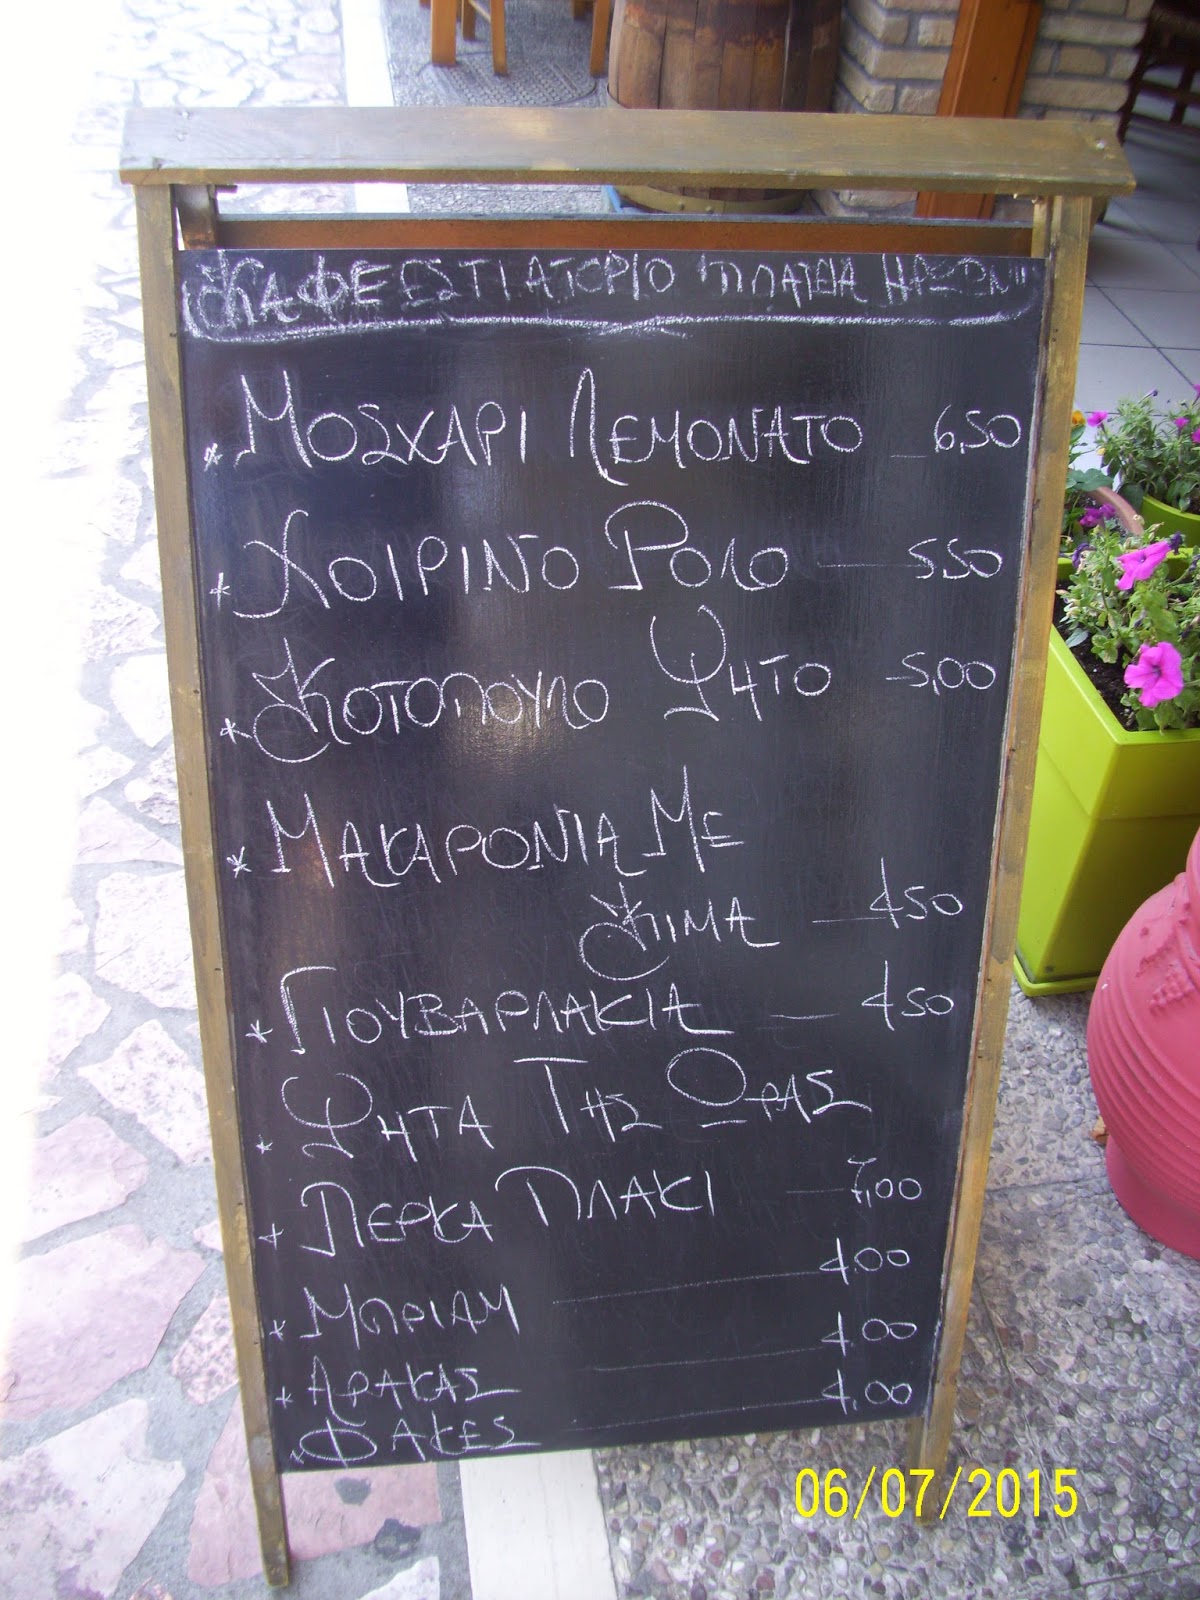 ΚΑΦΕΕΣΤΙΑΤΟΡΙΟ "ΠΛΑΤΕΙΑ
* ΜΟΣΧΑΡΙ ΛΕΜΟΝΑΤΟ _ 6,50
* ΧΟΙΡΙΝΟ ΡΟΛΟ — 5.50
* ΚΟΤΟΠΟΥΛΟ ΨΗΤΟ - 5,00
* ΜΑΚΑΡΟΝΙΑ ΜΕ
ΚΙΜΑ — 4.50
* ΓΙΟΥΒΑΡΛΑΚΙΑ — 4.50
* ΨΗΤΑ ΤΗΣ ΩΡΑΣ
* ΠΕΡΚΑ ΠΛΑΚΙ — 7,00
* ΜΠΡΙΑΜ — 4.00
* ΑΡΑΚΑΣ — 4.00
* ΦΑΚΕΣ — 4.00
06/07/2015